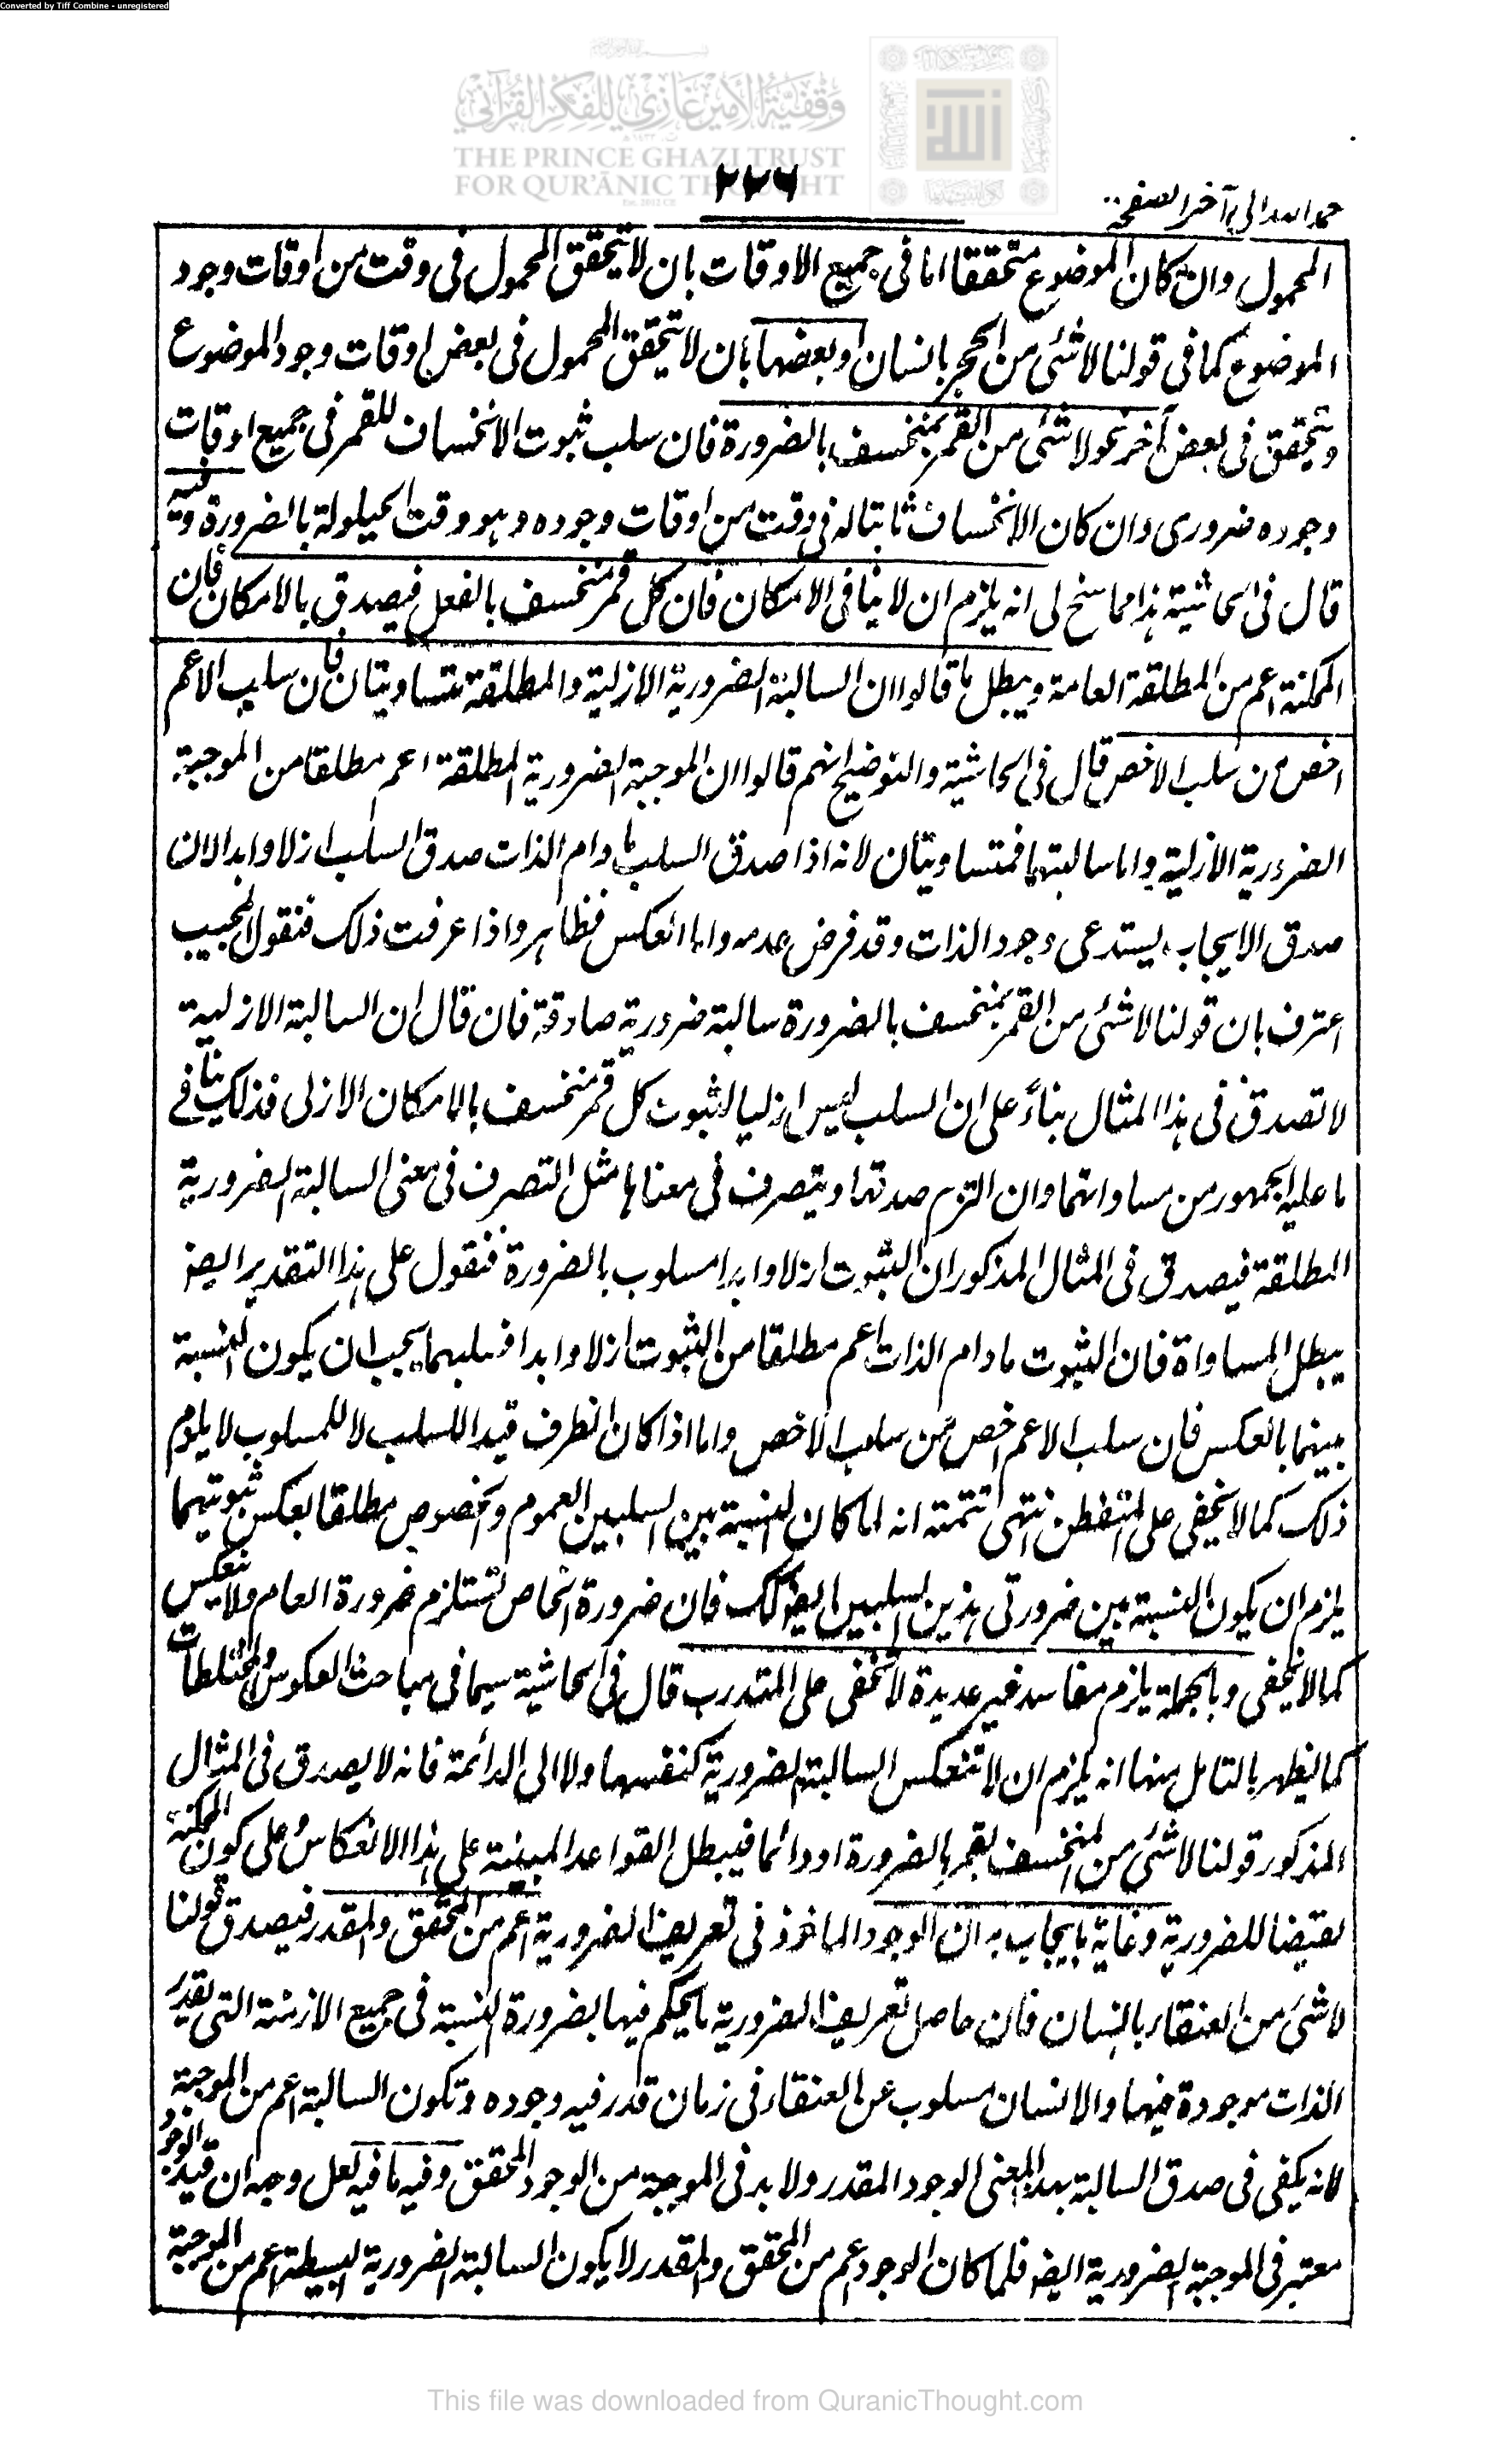 Converted by Tiff Combine - unregistered
وقفية الأمير غازي للفكر القرآني
THE PRINCE GHAZI TRUST
FOR QUR'ĀNIC THOUGHT
٢٢٦
حمد الله الى آخر الصفحة
المحمول وان كان الموضوع متحققا اما فى جميع الاوقات بان لا يتحقق المحمول فى وقت من اوقات وجود
الموضوع كما فى قولنا لا شئ من الحجر بانسان او بعضها بان لا يتحقق المحمول فى بعض اوقات وجود الموضوع
ويتحقق فى بعض آخر نحو لا شئ من القمر بمنخسف بالضرورة فان سلب ثبوت الانخساف للقمر فى جميع اوقات
وجوده ضرورى وان كان الانخساف ثابتا له فى وقت من اوقات وجوده وهو وقت الحيلولة بالضرورة وفيه
قال فى الحاشية هذا مما سنح لى انه يلزم ان لا ينافى الامكان فان كل قمر منخسف بالفعل فيصدق بالامكان فان
الممكنة اعم من المطلقة العامة ويبطل ما قالوا ان السالبة الضرورية الازلية والمطلقة متساويتان فان سلب الاعم
اخص من سلب الاخص قال فى الحاشية والتوضيح انهم قالوا ان الموجبة الضرورية المطلقة اعم مطلقا من الموجبة
الضرورية الازلية واما سالبتهما فمتساويتان لانه اذا صدق السلب ما دام الذات صدق السلب ازلا وابدا لان
صدق الايجاب يستدعى وجود الذات وقد فرض عدمه واما العكس فظاهر واذا عرفت ذلك فنقول المجيب
اعترف بان قولنا لا شئ من القمر بمنخسف بالضرورة سالبة ضرورية صادقة فان قال ان السالبة الازلية
لا تصدق فى هذا المثال بناءً على ان السلب ليس ازليا لثبوت كل قمر منخسف بالامكان الازلى فذلك ينافى
ما عليه الجمهور من مساواتهما وان التزم صدقها ويتصرف فى معناها مثل التصرف فى معنى السالبة الضرورية
المطلقة فيصدق فى المثال المذكور ان الثبوت ازلا وابدا مسلوب بالضرورة فنقول على هذا التقدير ايضا
يبطل المساواة فان الثبوت ما دام الذات اعم مطلقا من الثبوت ازلا وابدا فسلبهما يجب ان يكون النسبة
بينهما بالعكس فان سلب الاعم اخص من سلب الاخص واما اذا كان الظرف قيدا للسلب لا للمسلوب لا يلزم
ذلك كما لا يخفى على المتفطن انتهى تتمته انه لما كان النسبة بين السلبين العموم والخصوص مطلقا بعكس ثبوتيهما
يلزم ان يكون النسبة بين ضرورتى هذين السلبين ايضا كك فان ضرورة الخاص تستلزم ضرورة العام ولا ينعكس
كما لا يخفى وبالجملة يلزم مفاسد غير عديدة لا تخفى على المتدرب قال فى الحاشية سيما فى مباحث العكوس والمختلطات
كما يظهر بالتامل منها انه يلزم ان لا تنعكس السالبة الضرورية كنفسها ولا الى الدائمة فانه لا يصدق فى المثال
المذكور قولنا لا شئ من المنخسف بقمر بالضرورة او دائما فيبطل القواعد المبينة على هذا الانعكاس وعلى كون الممكنة
نقيضا للضرورية وغاية ما يجاب به ان الوجود الماخوذ فى تعريف الضرورية اعم من المحقق والمقدر فيصدق قولنا
لا شئ من العنقاء بانسان فان حاصل تعريف الضرورية ما يحكم فيها بضرورة النسبة فى جميع الازمنة التى يقدر
الذات موجودة فيها والانسان مسلوب عن العنقاء فى زمان قدر فيه وجوده وتكون السالبة اعم من الموجبة
لانه يكفى فى صدق السالبة بهذا المعنى الوجود المقدر ولا بد فى الموجبة من الوجود المحقق وفيه ما فيه لعل وجه ان قيد الوجود
معتبر فى الموجبة الضرورية ايضا فلما كان الوجود اعم من المحقق والمقدر لا يكون السالبة الضرورية البسيطة اعم من الموجبة
This file was downloaded from QuranicThought.com